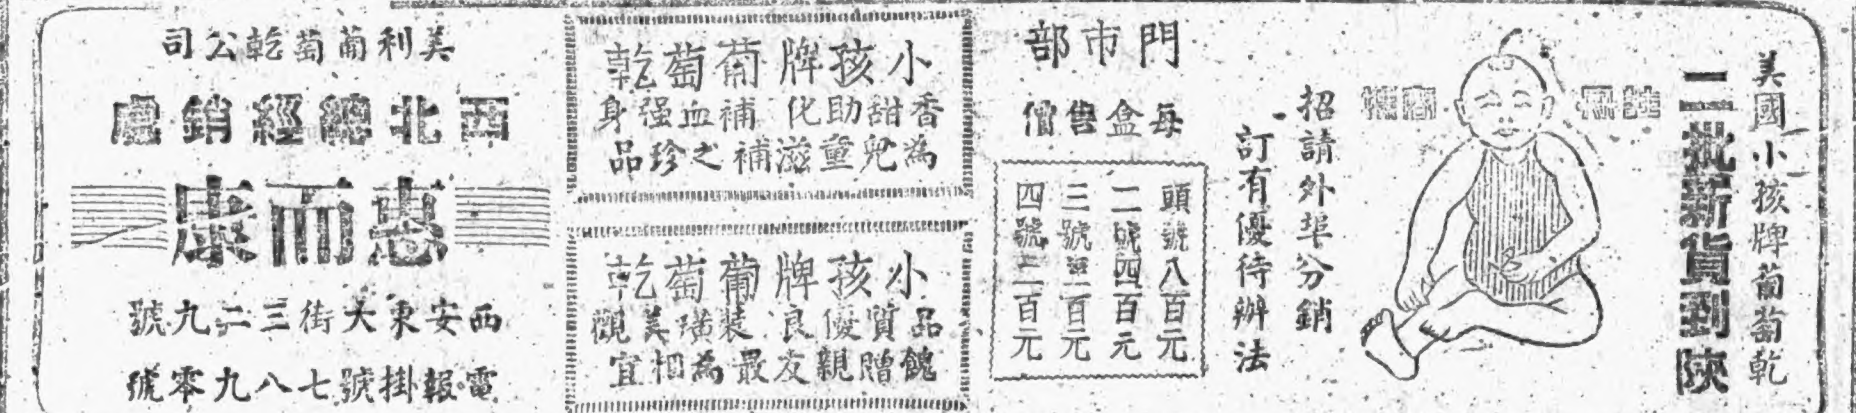 美國小孩牌葡萄乾
二批新貨到陝
註册
商標
招請外埠分銷
訂有優待辦法
門市部
每盒售價
頭號八百元
二號四百元
三號三百元
四號二百元
小孩牌葡萄乾
香甜助化 補血强身
為兒童滋補之珍品
小孩牌葡萄乾
品質優良 裝璜美觀
餽贈親友最為相宜
美利葡萄乾公司
西北總經銷處
惠而康
西安東大街三二九號
電報掛號七八九零號